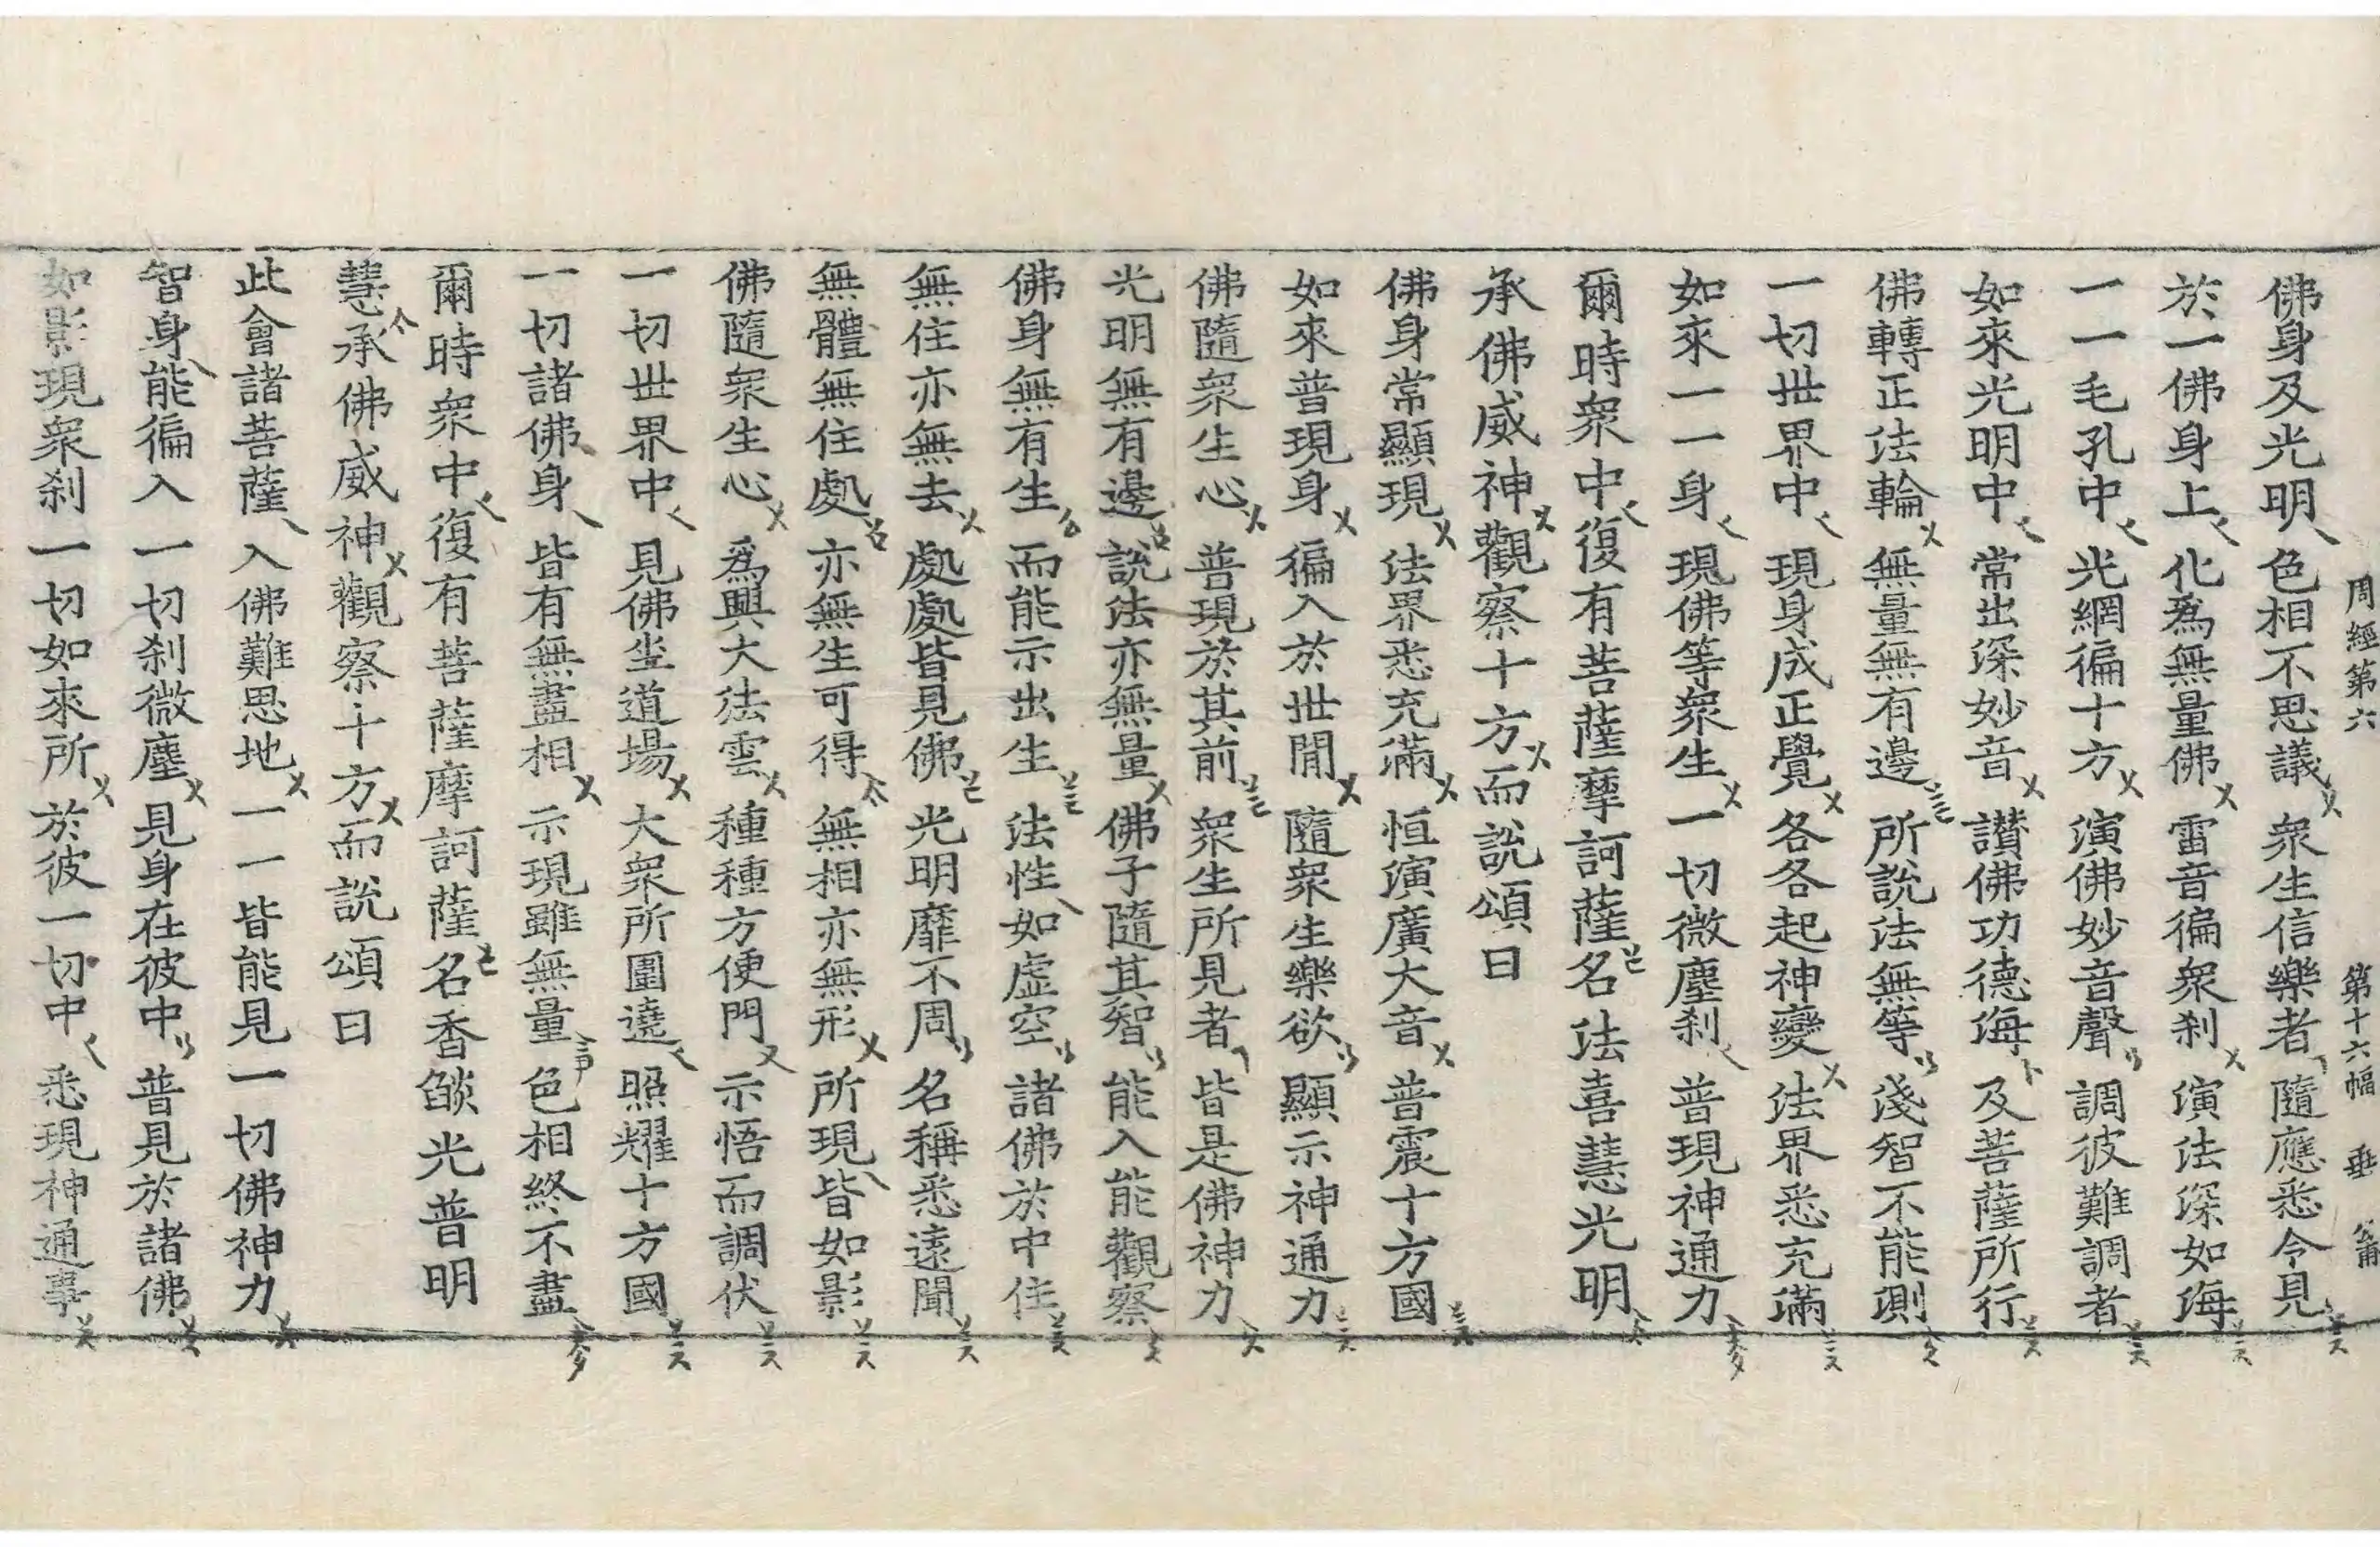 周經第六 第十六幅 垂
佛身及光明 色相不思議 衆生信樂者 隨應悉令見
於一佛身上 化爲無量佛 雷音徧衆刹 演法深如海
一一毛孔中 光網徧十方 演佛妙音聲 調彼難調者
如來光明中 常出深妙音 讃佛功德海 及菩薩所行
佛轉正法輪 無量無有邊 所說法無等 淺智不能測
一切世界中 現身成正覺 各各起神變 法界悉充滿
如來一一身 現佛等衆生 一切微塵刹 普現神通力
爾時衆中復有菩薩摩訶薩名法喜慧光明
承佛威神觀察十方而說頌曰
佛身常顯現 法界悉充滿 恒演廣大音 普震十方國
如來普現身 徧入於世閒 隨衆生樂欲 顯示神通力
佛隨衆生心 普現於其前 衆生所見者 皆是佛神力
光明無有邊 說法亦無量 佛子隨其智 能入能觀察
佛身無有生 而能示出生 法性如虛空 諸佛於中住
無住亦無去 處處皆見佛 光明靡不周 名稱悉遠聞
無體無住處 亦無生可得 無相亦無形 所現皆如影
佛隨衆生心 爲興大法雲 種種方便門 示悟而調伏
一切世界中 見佛坐道場 大衆所圍遶 照耀十方國
一切諸佛身 皆有無盡相 示現雖無量 色相終不盡
爾時衆中復有菩薩摩訶薩名香燄光普明
慧承佛威神觀察十方而說頌曰
此會諸菩薩 入佛難思地 一一皆能見 一切佛神力
智身能徧入 一切刹微塵 見身在彼中 普見於諸佛
如影現衆刹 一切如來所 於彼一切中 悉現神通事